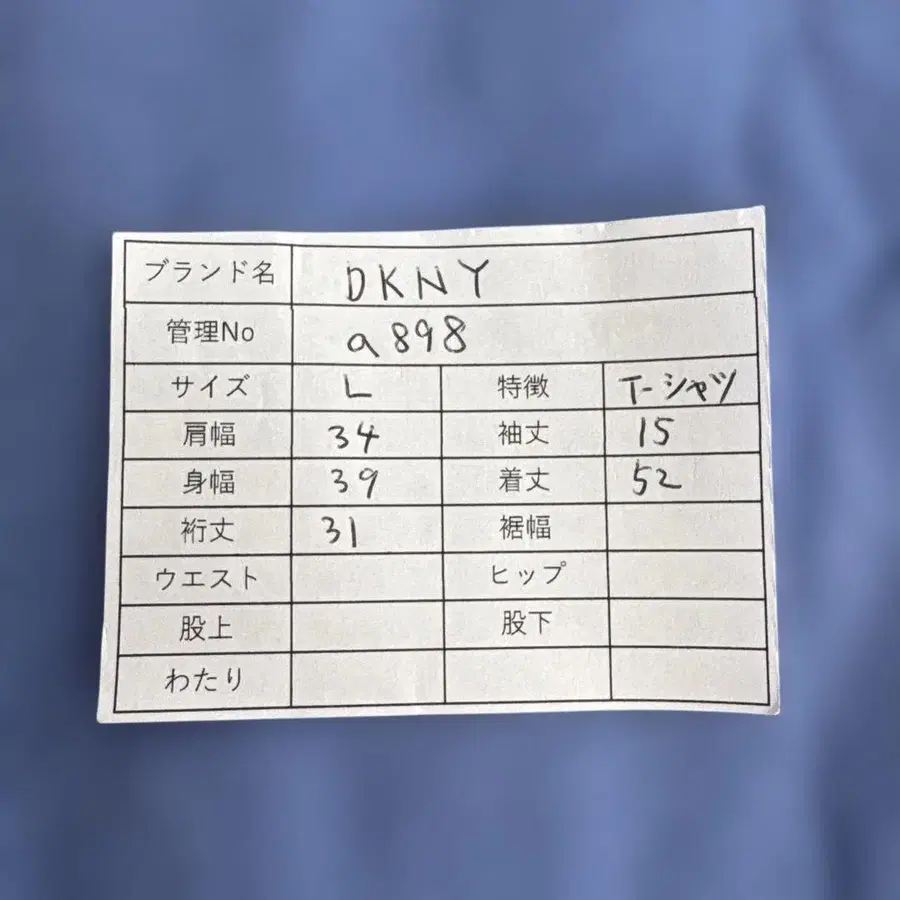 ブランド名 DKNY
管理No a898
サイズ L 特徴 T-シャツ
肩幅 34 袖丈 15
身幅 39 着丈 52
裄丈 31 裾幅
ウエスト ヒップ
股上 股下
わたり